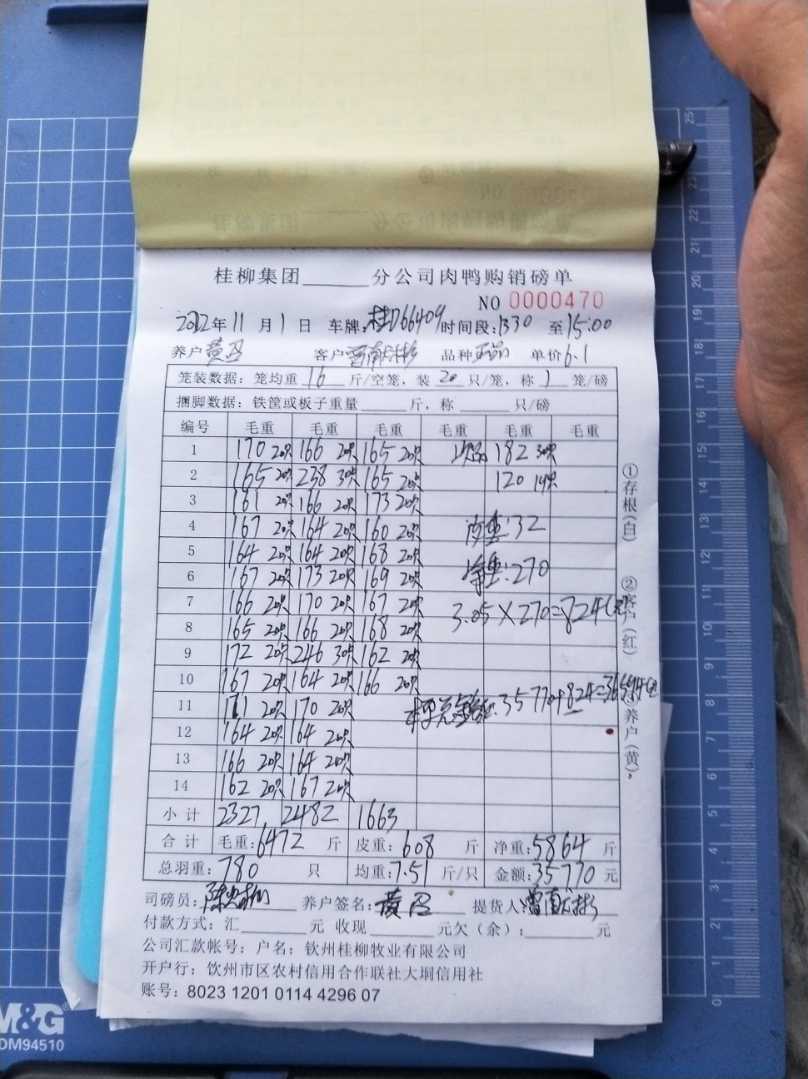 桂柳集团______分公司肉鸭购销磅单
NO 0000470
2022年11月1日 车牌:桂D66409 时间段:1330 至15:00
养户 客户 品种正品 单价6.1
笼装数据: 笼均重 16 斤/空笼, 装 20 只/笼, 称 1 笼/磅
捆脚数据: 铁筐或板子重量______斤, 称______只/磅
编号 毛重 毛重 毛重 毛重 毛重 毛重
1 170 20只 166 20只 165 20只 次品 182 30只
2 165 20只 238 30只 165 20只 120 14只
3 161 20只 166 20只 173 20只
4 167 20只 164 20只 160 20只 皮重:32
5 164 20只 164 20只 168 20只
6 167 20只 173 20只 169 20只 净重:270
7 166 20只 170 20只 167 20只 3.05×270=824元
8 165 20只 166 20只 168 20只
9 172 20只 246 30只 162 20只
10 167 20只 164 20只 166 20只
11 171 20只 170 20只 总金额:35770+824=36594元
12 164 20只 164 20只
13 166 20只 164 20只
14 162 20只 167 20只
小计 2327 2482 1663
合计 毛重:6472 斤 皮重:608 斤 净重:5864 斤
总羽重:780 只 均重:7.51 斤/只 金额:35770 元
司磅员: 养户签名: 提货人:
付款方式: 汇______元 收现______元欠(余):______元
公司汇款帐号: 户名: 钦州桂柳牧业有限公司
开户行: 饮州市区农村信用合作联社大垌信用社
账号: 8023 1201 0114 4296 07
①存根(白) ②客户(红) ③养户(黄),
M&G
DM94510
0 1 2 3 4 5 6 7 8 9 10 11 12 13 14 15 16 17 18 19 20 21 22 23 24 25